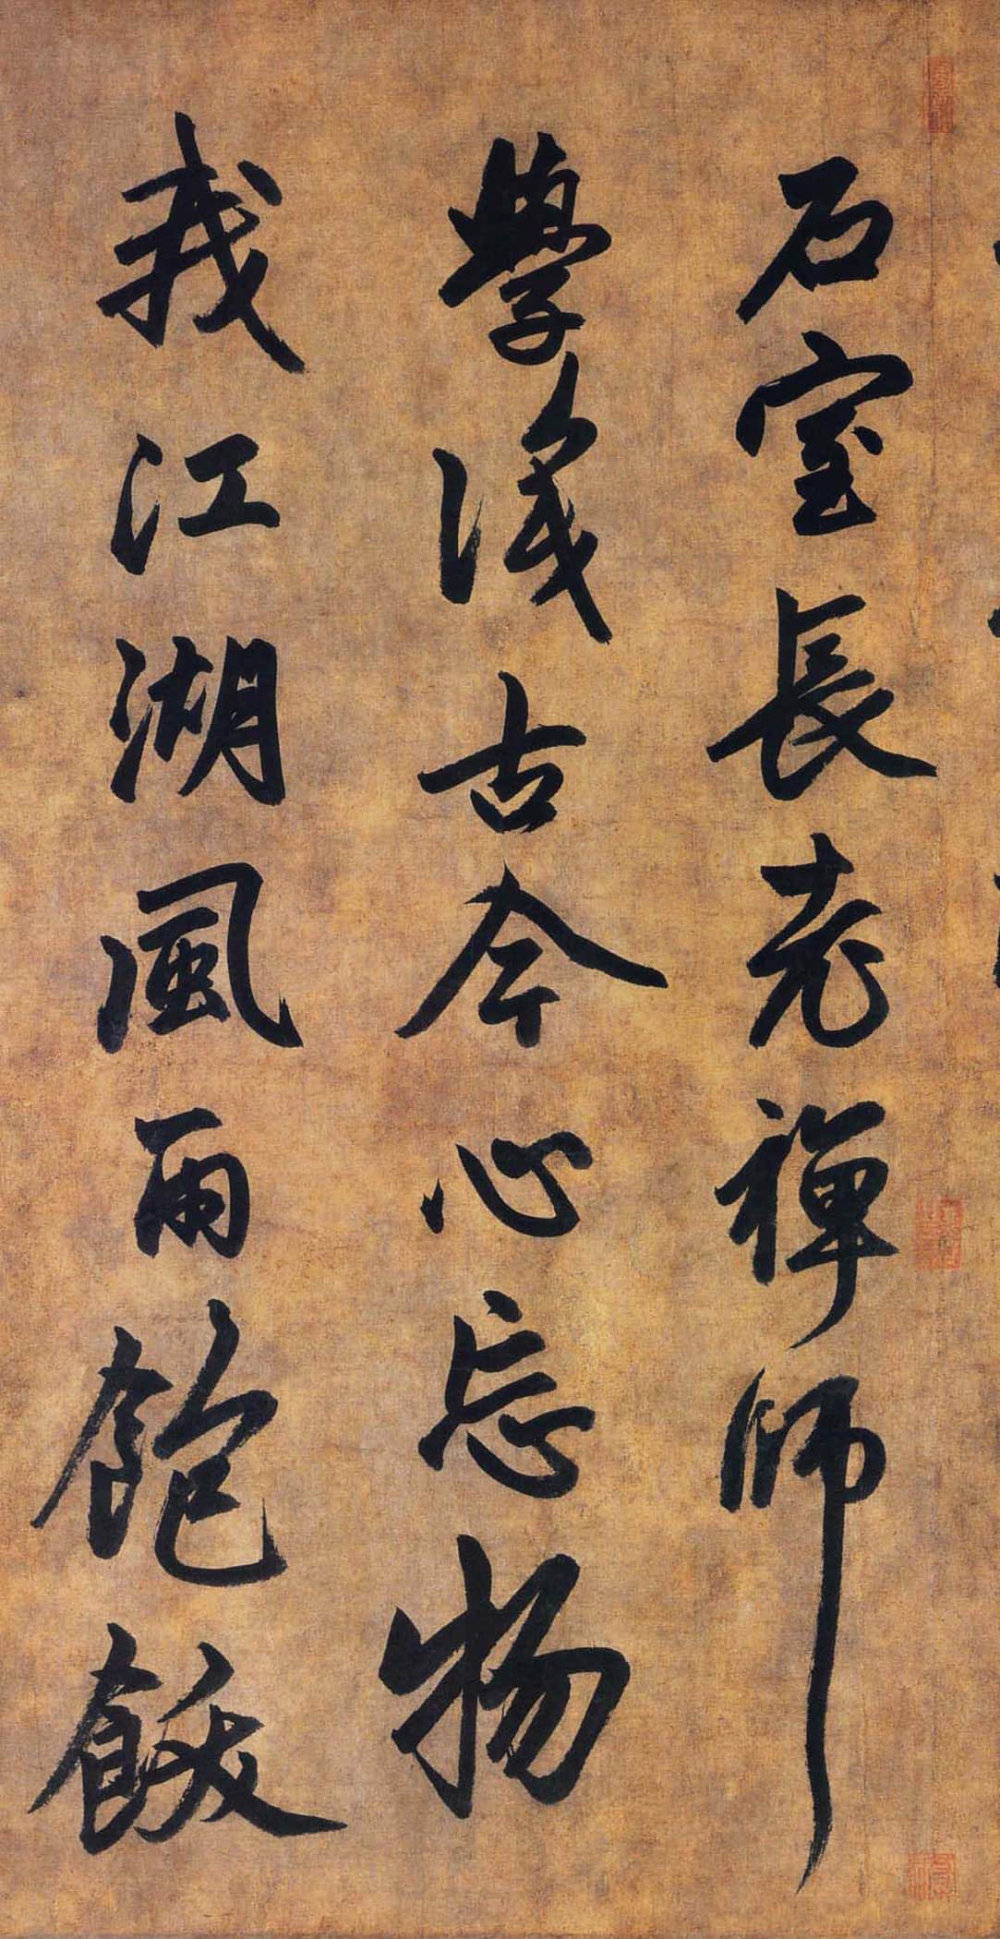 石室長老禪師
學識古今心忘物
我江湖風雨飽飫